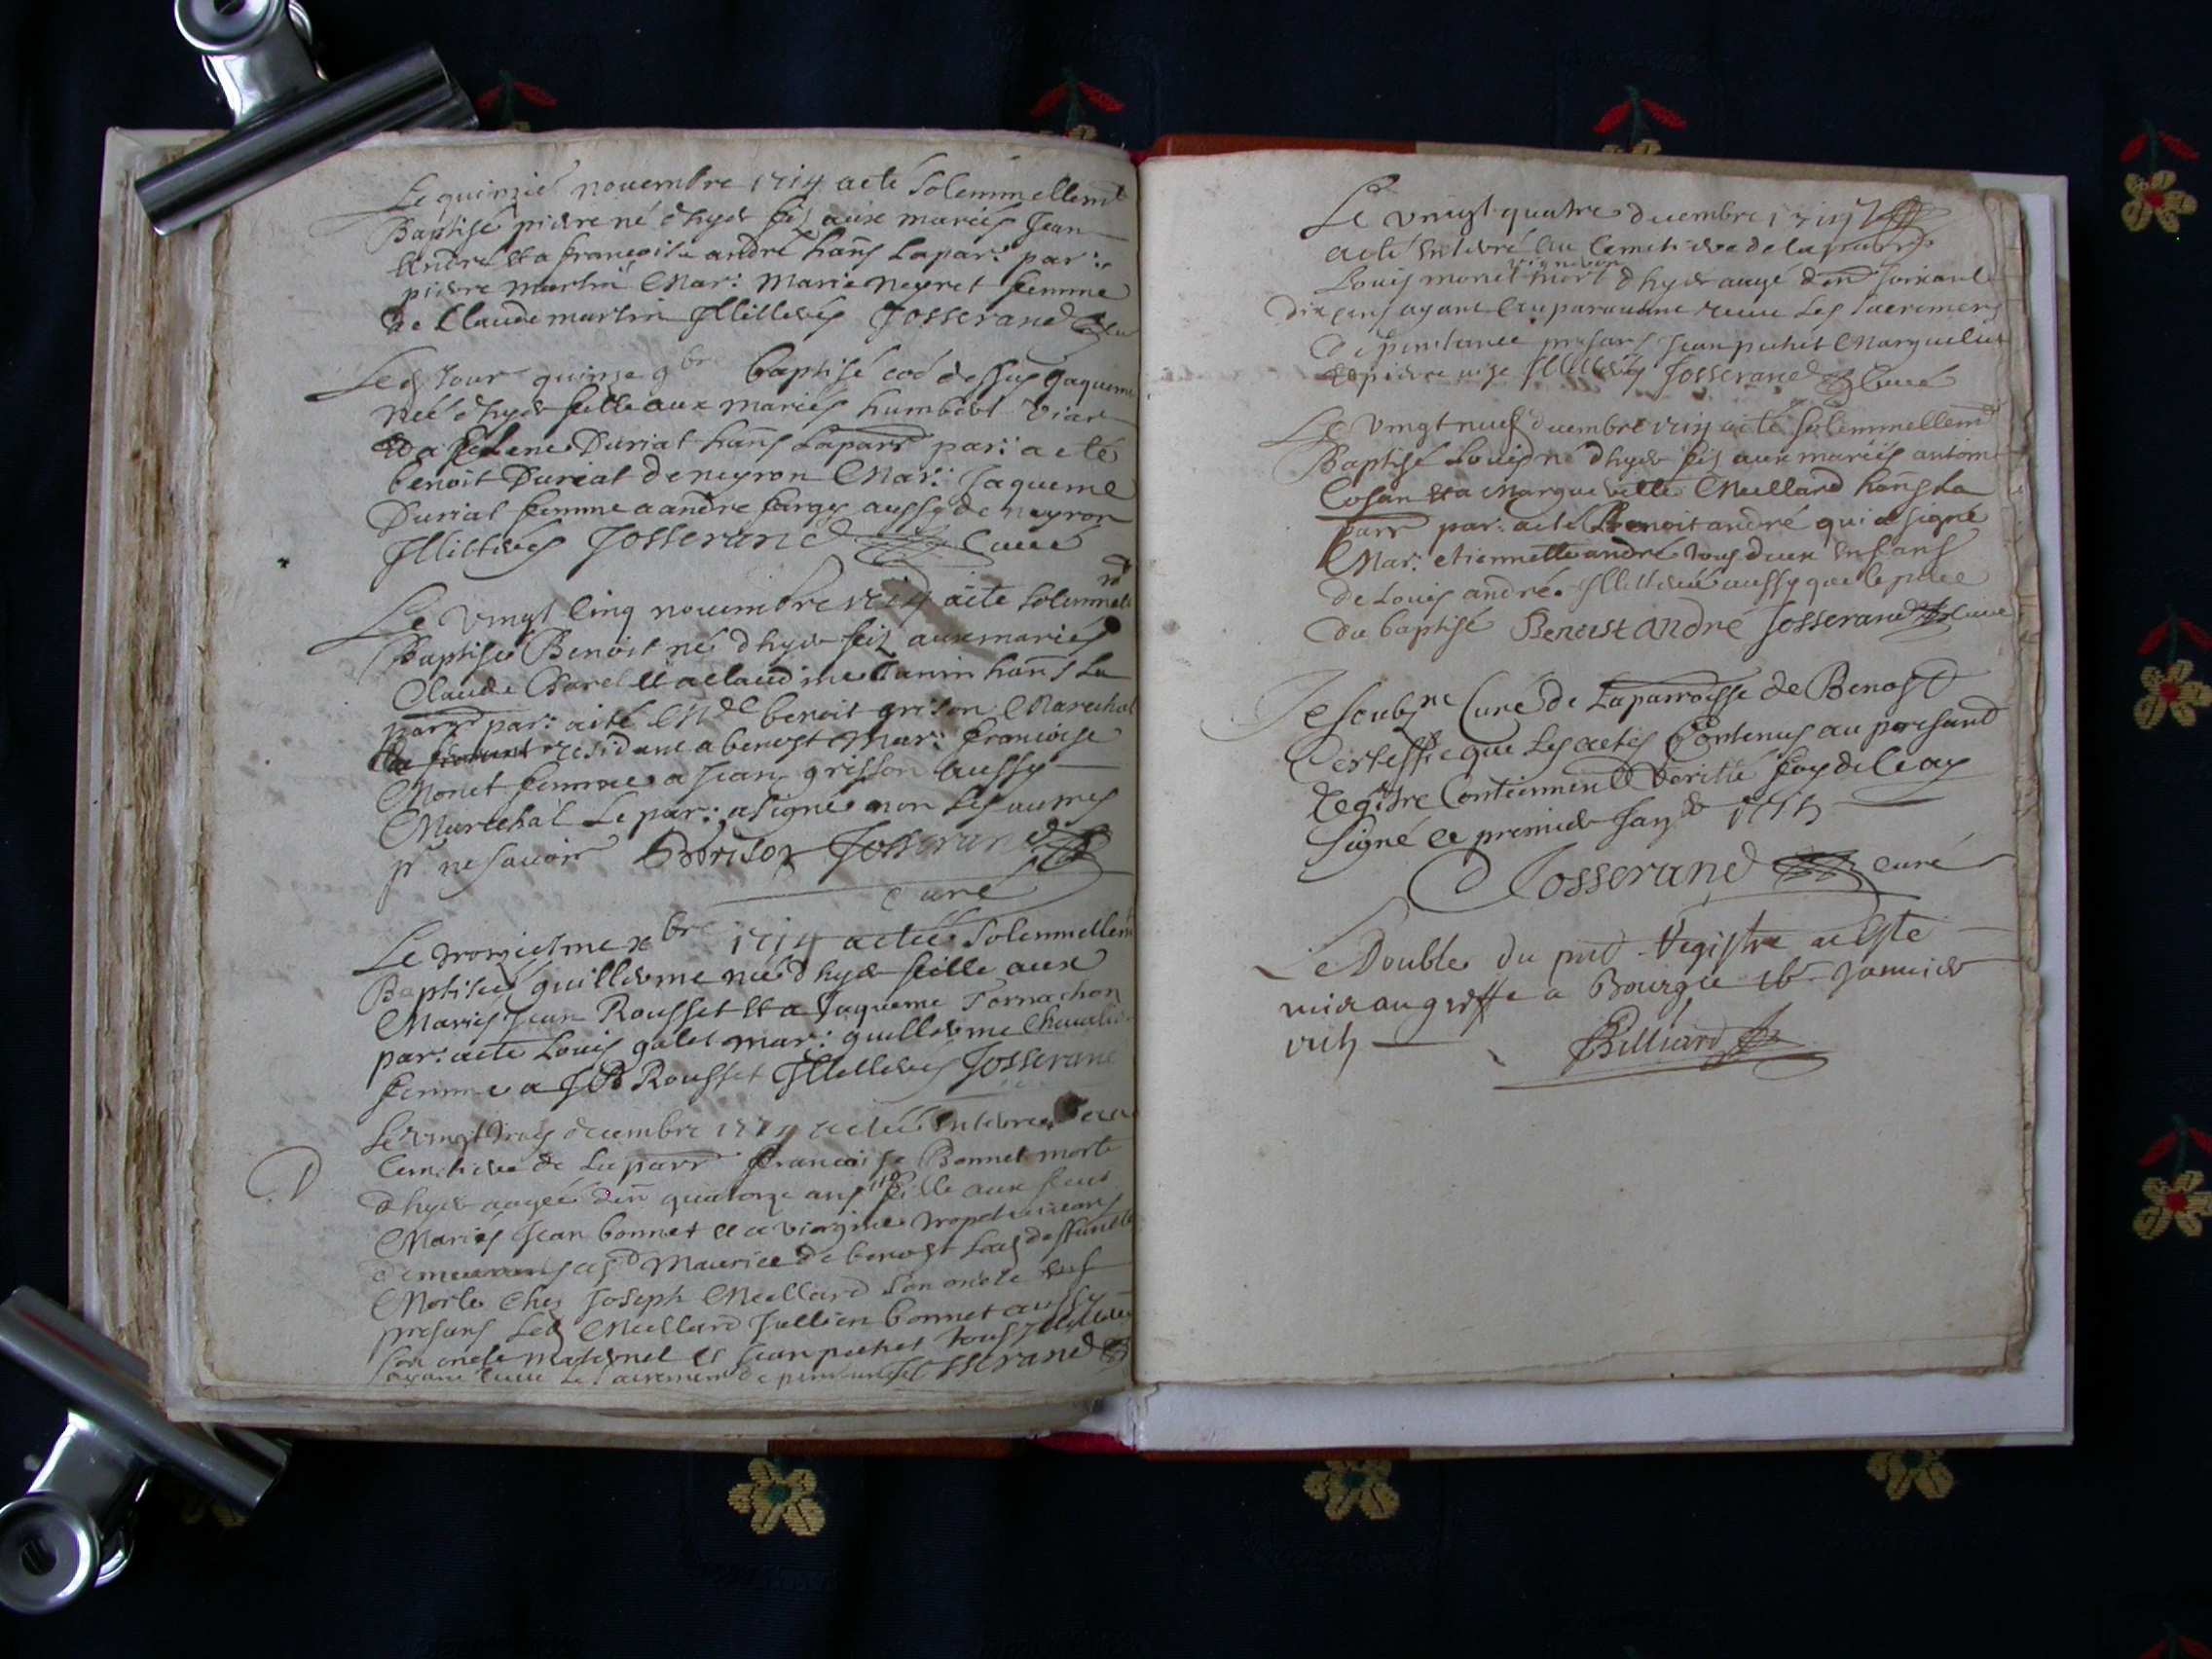 Le quinzie novembre 1714 a eté solemnellemt
Baptisé pierre né d'hyer fis aux mariés Jean
André et a francoise andré hans la par: par:
pierre martin Mar: Marie neyret femme
de Claude martin Illiterés Josserand curé
Led jour quinze 9bre baptisé coe dessus Jaqueme
née d'hyer fille aux mariés humbert
et a helene Duriat hans la parr par: a eté
benoit Duriat de neyron Mar: Jaqueme
Duriat femme a andré fargy aussy de neyron
Illiterés Josserand Curé
Le vingt cinq novembre 1714 a eté solemnelt
Baptisé Benoit né d'hyer fis aux mariés
Claude et a claudine Janin hans la
parr par: a eté benoit grison Marechal
residant a benost Mar: francoise
Monet femme a Jean grisson aussy
Marechal Le par: a signé non les autres
pr ne savoir Grison Josserand
curé
Le troiziesme xbre 1714 a etée solemnellemt
Baptisée guillerme née d'hyer fille aux
Mariés Jean Rousset et a Jaqueme Tornachon
par: a eté Louis galet mar: guillerme Chevalier
femme a JB Rousset Illiterés Josserand
Le vingt trois decembre 1714 a etée enterrée au
Cemitiere de la parr francoise Bonnet morte
d'hyer aagée d'en quatorze ans fille aux feus
Mariés Jean bonnet et a virgine
demeurans a st Maurice de benost lad deffunte
Morte chez Joseph Meillard son oncle
presans led Meillard Jullien bonnet aussy
son oncle maternel et Jean pochet tous Illiterés
ayant receu le sacrement de penitence Josserand
Le vingt quatre decembre 1714
a eté enterré au Cemitiere de la parr
Louis monet vigneron mort d'hyer aagé d'en soixante
dix ans ayant auparavant receu les sacremens
de penitence presans Jean pochet Marguelier
et pierre Illiterés Josserand Curé
Le vingt neuf decembre 1714 a eté solemnellemt
Baptisé Louis né d'hyer fis aux mariés antoine
Cosan et a Margueritte Meillard hans la
parr par: a eté Benoit andré qui a signé
Mar: etiennette andré tous deux enfans
de Louis andré. Illiterée aussy que le pere
du baptisé Benoist andré Josserand Curé
Je soubzne Curé de La parroisse de Benost
Certeffie que les actes Contenus au presant
Regitre Contiennent verité foy de Ce ay
signé ce premier Janr 1715
Josserand curé
Le Double du pnt Registre a esté
mis au greffe a Bourg ce 16 Janvier
1715
Billiard